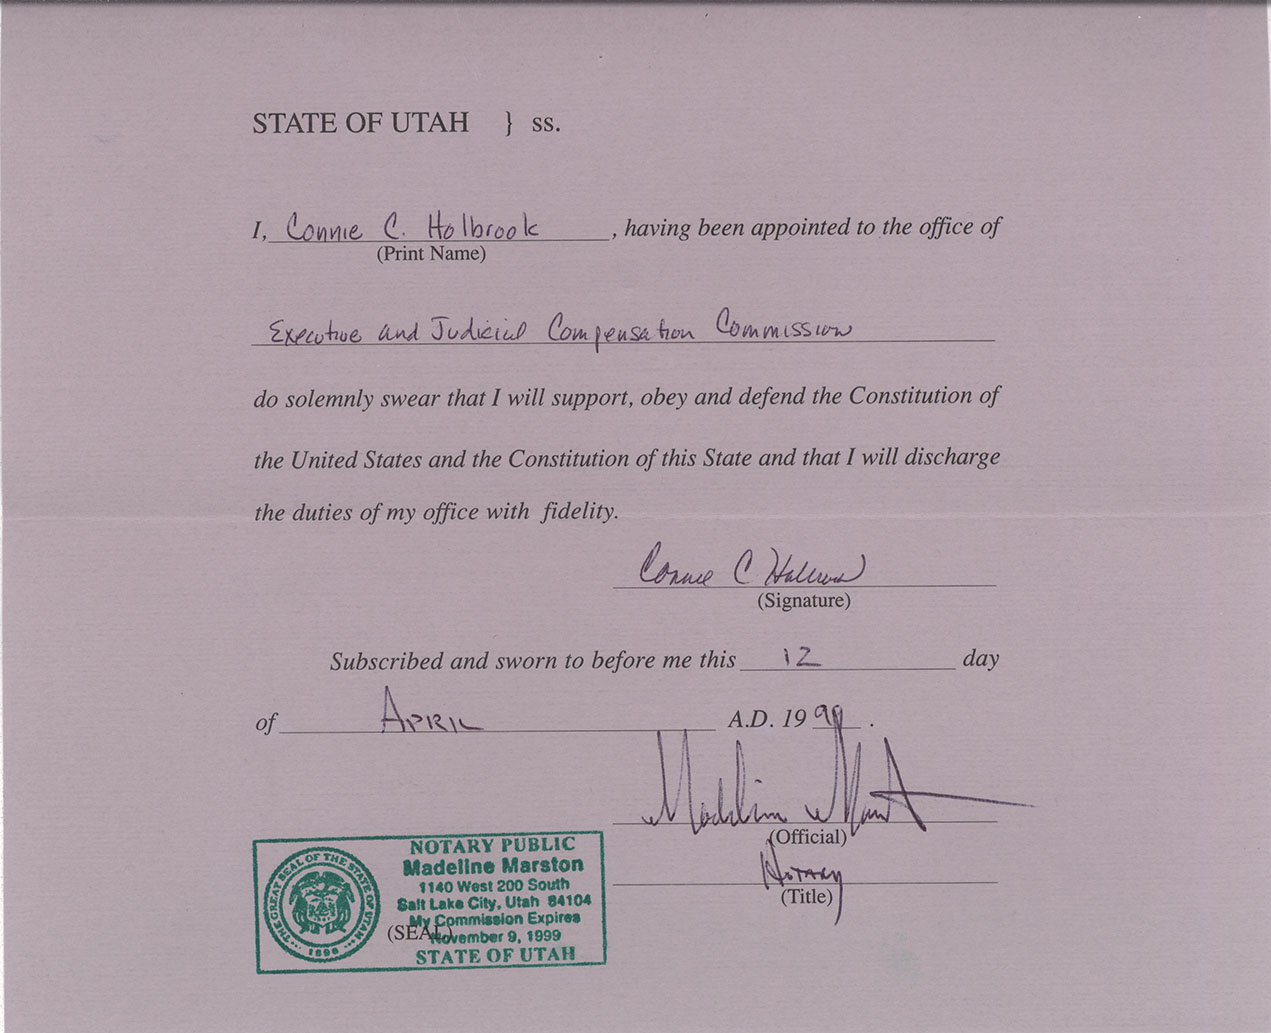 STATE OF UTAH } ss.
I, Connie C. Holbrook, having been appointed to the office of
(Print Name)
Executive and Judicial Compensation Commission
do solemnly swear that I will support, obey and defend the Constitution of
the United States and the Constitution of this State and that I will discharge
the duties of my office with fidelity.
Connie C Holbrook
(Signature)
Subscribed and sworn to before me this 12 day
of APRIL A.D. 1999.
Madeline Marston
(Official)
NOTARY
(Title)
THE GREAT SEAL OF THE STATE OF UTAH
1896
NOTARY PUBLIC
Madeline Marston
1140 West 200 South
Salt Lake City, Utah 84104
My Commission Expires
(SEAL) November 9, 1999
STATE OF UTAH